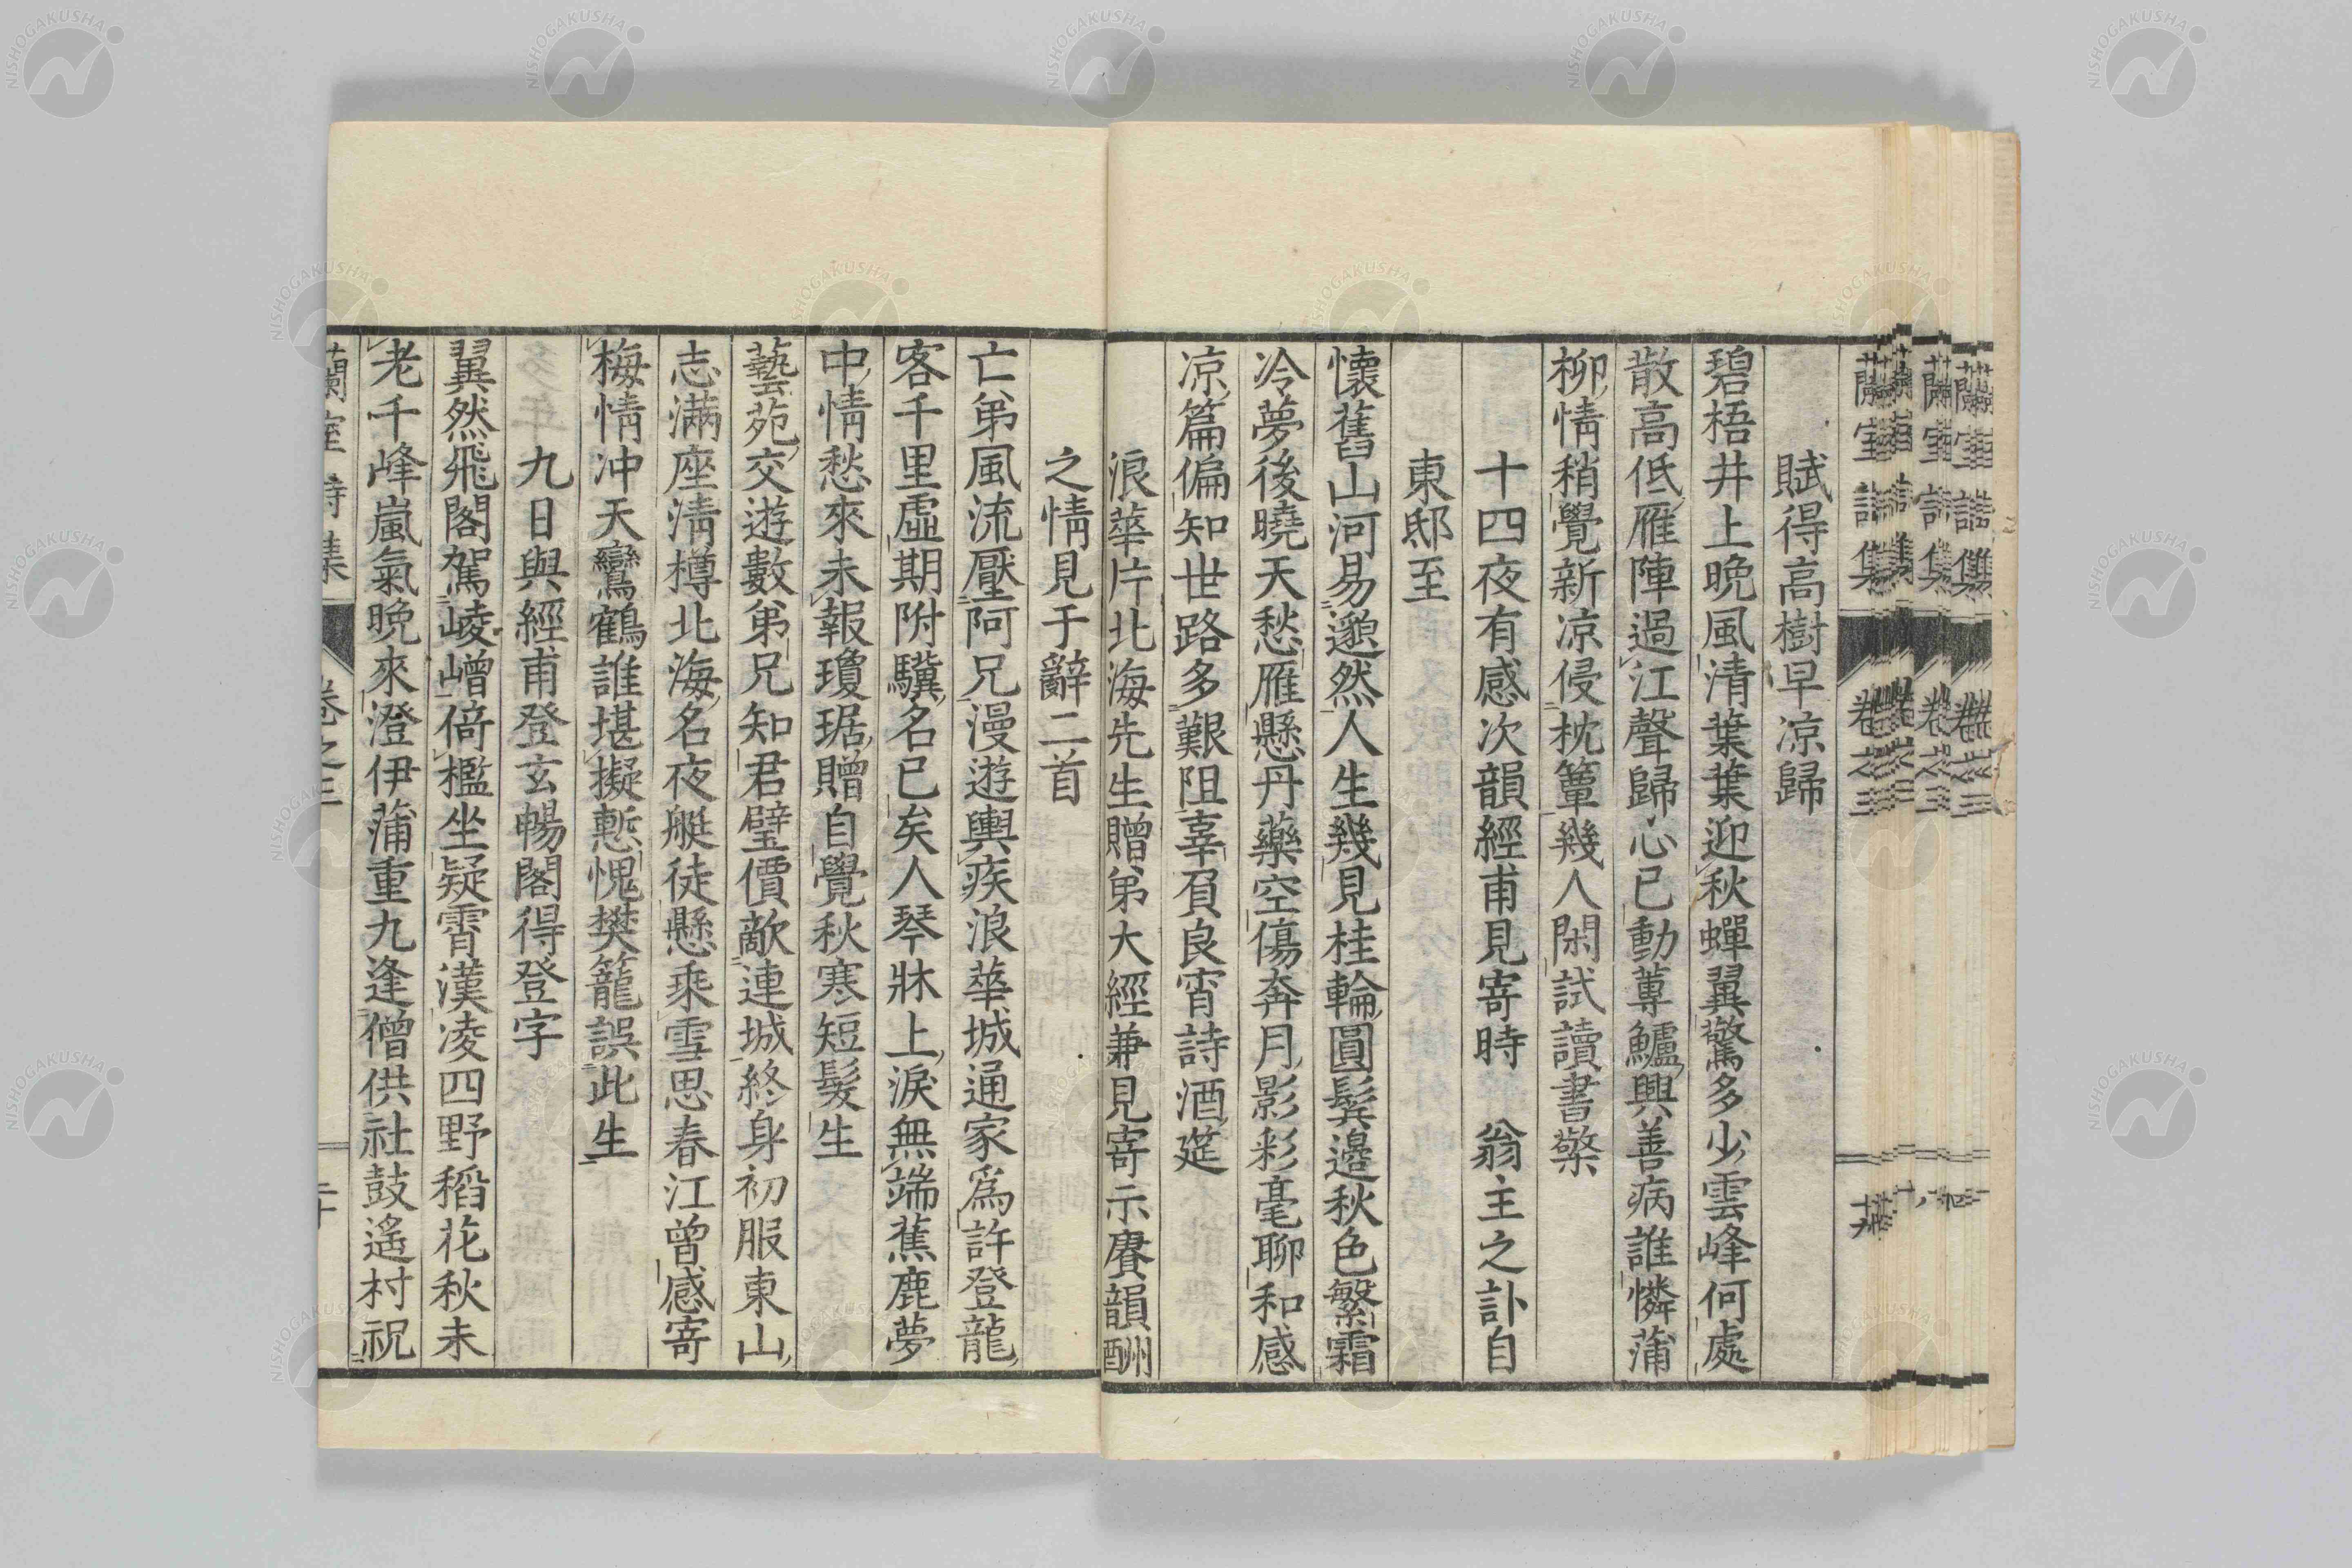 賦得高樹早凉歸
碧梧井上晚風清葉葉迎秋蟬翼驚多少雲峰何處
散高低雁陣過江聲歸心已動蓴鱸興善病誰憐蒲
柳情稍覺新凉侵枕簟幾人閑試讀書檠
十四夜有感次韻經甫見寄時 翁主之訃自
東邸至
懷舊山河易邈然人生幾見桂輪圓鬂邊秋色繁霜
冷夢後曉天愁雁懸丹藥空傷奔月影彩毫聊和感
凉篇偏知世路多艱阻辜負良宵詩酒筵
浪華片北海先生贈弟大經兼見寄示賡韻酬
之情見于辭二首
亡弟風流壓阿兄漫遊輿疾浪華城通家爲許登龍
客千里虛期附驥名已矣人琴牀上淚無端蕉鹿夢
中情愁來未報瓊琚贈自覺秋寒短髮生
藝苑交遊數弟兄知君璧價敵連城終身初服東山
志滿座清樽北海名夜艇徒懸乘雪思春江曾感寄
梅情冲天鸞鶴誰堪擬慙愧樊籠誤此生
九日與經甫登玄暢閣得登字
翼然飛閣駕崚嶒倚檻坐疑霄漢凌四野稻花秋未
老千峰嵐氣晚來澄伊蒲重九逢僧供社鼓遙村祝
蘭室詩集 卷之三 二十
NISHOGAKUSHA